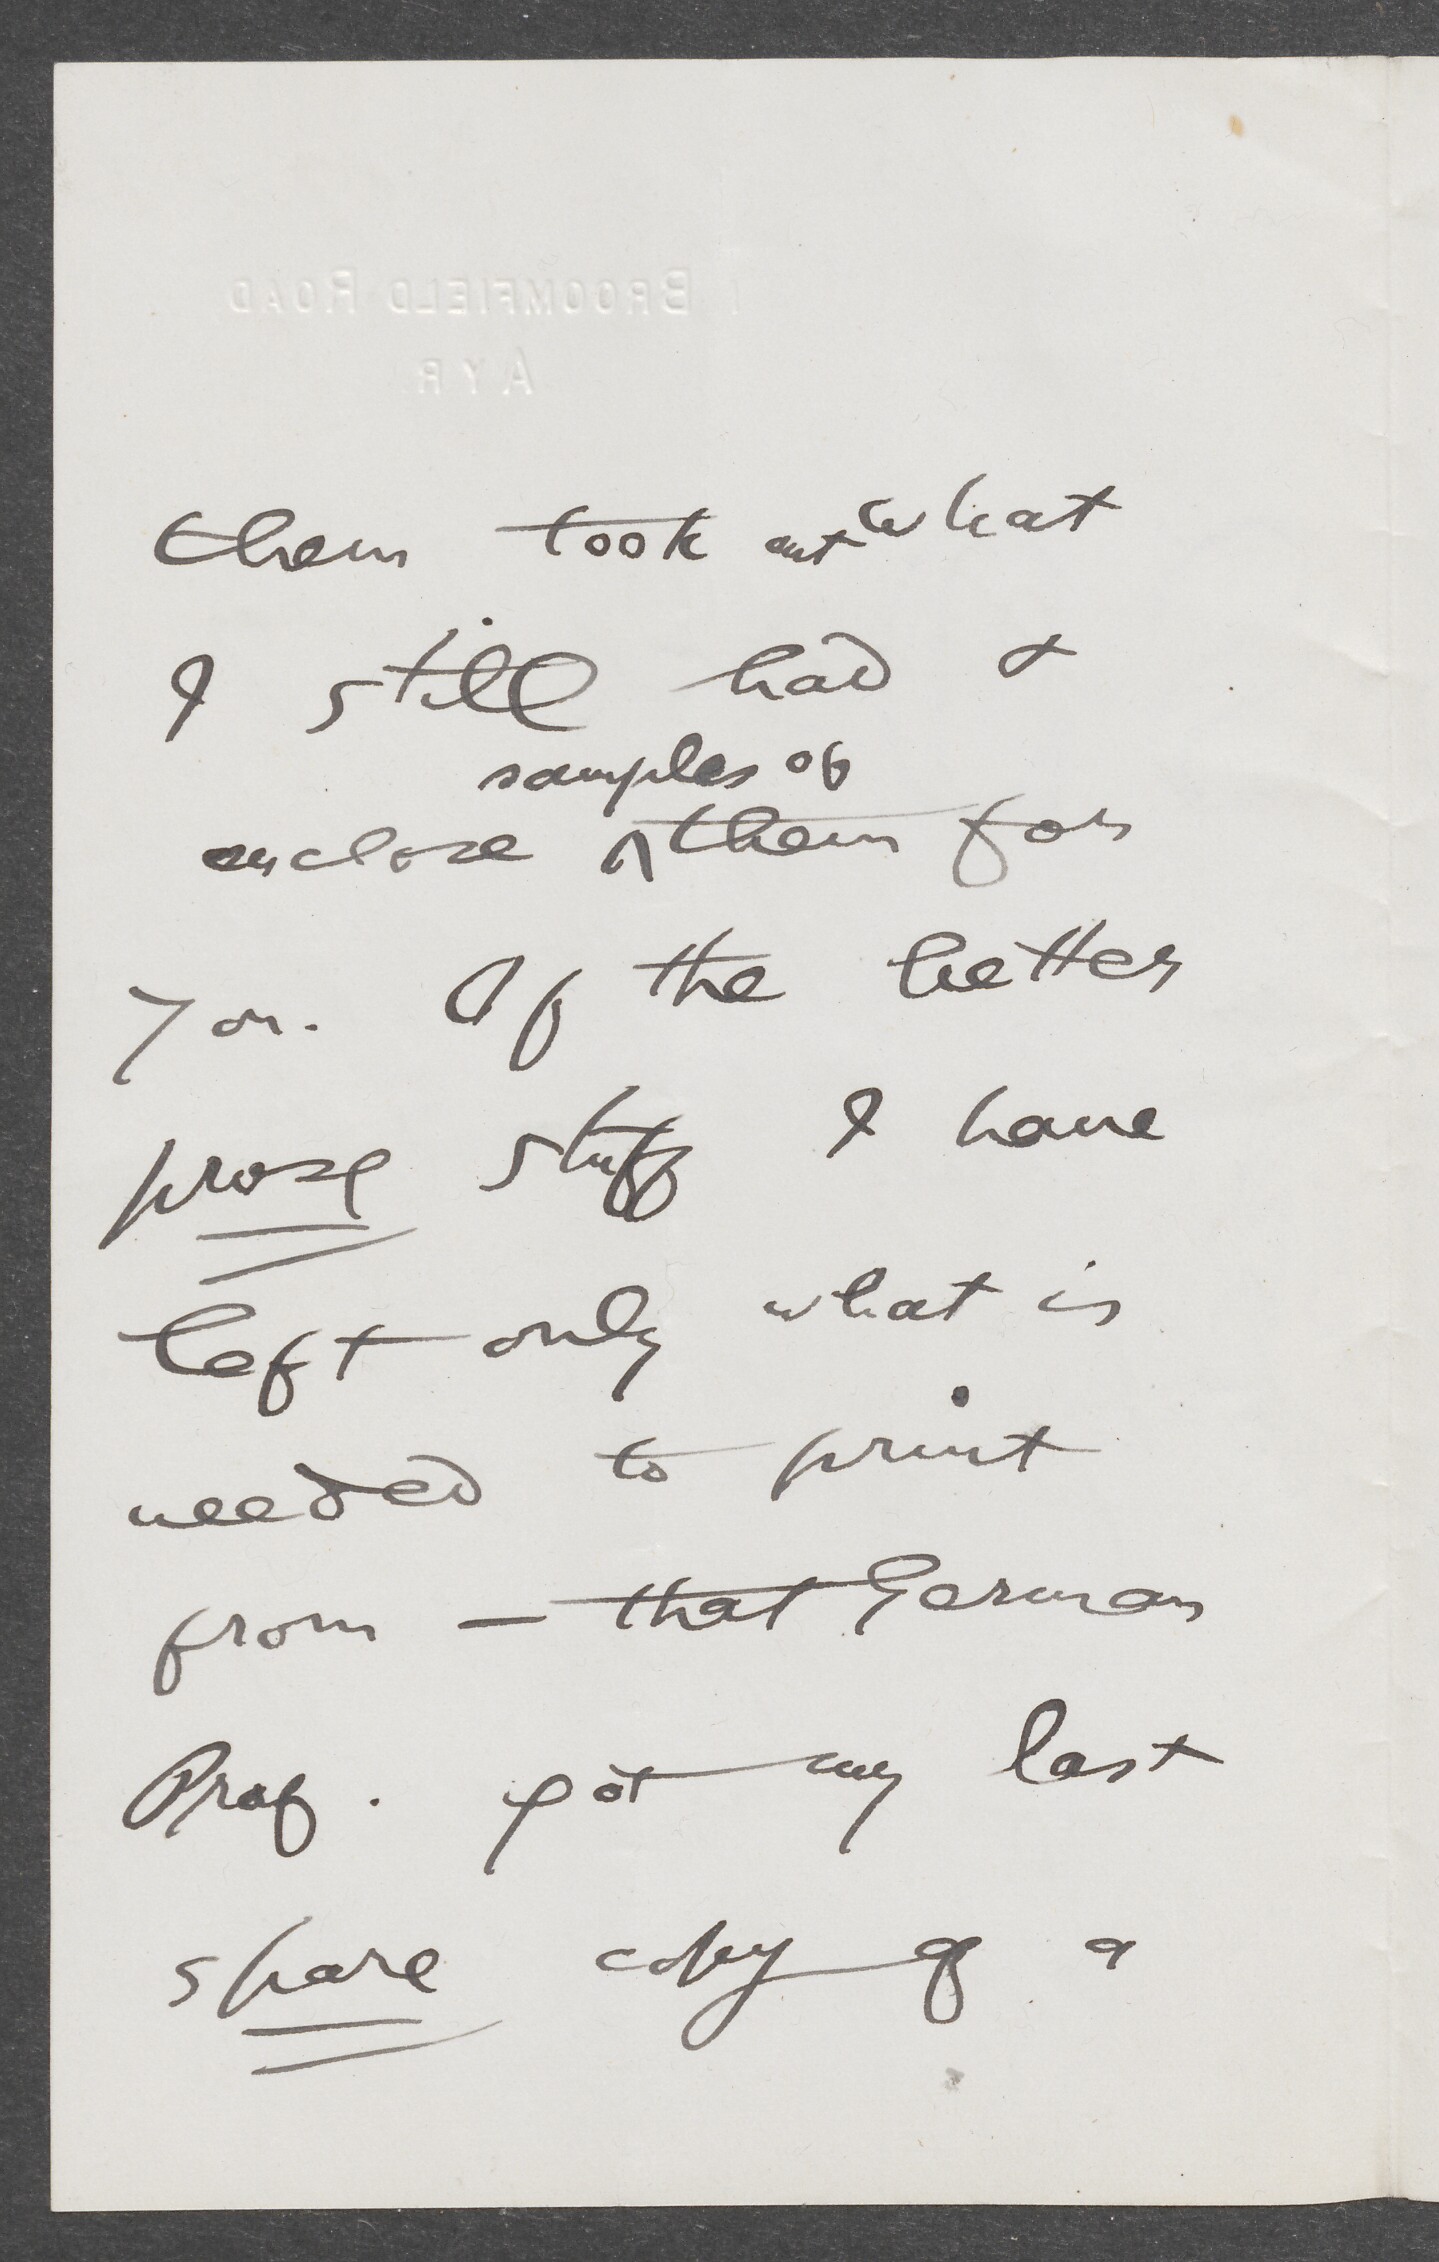 BROOMFIELD ROAD
AYR
them took out what
I still had &
samples of
enclose ^ them for
you. Of the better
prose stuff I have
left only what is
needed to print
from — that German
Prof. got my last
spare copy of a